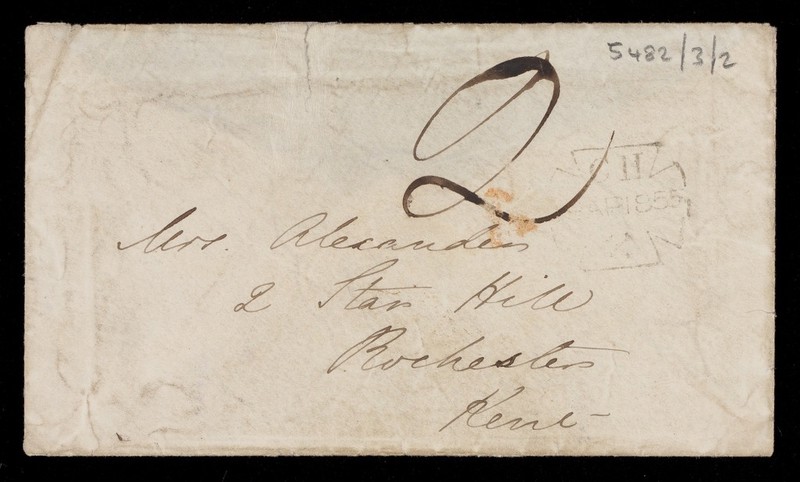 5482/3/2
2
AP 1855
Mrs. Alexander
2 Star Hill
Rochester
Kent